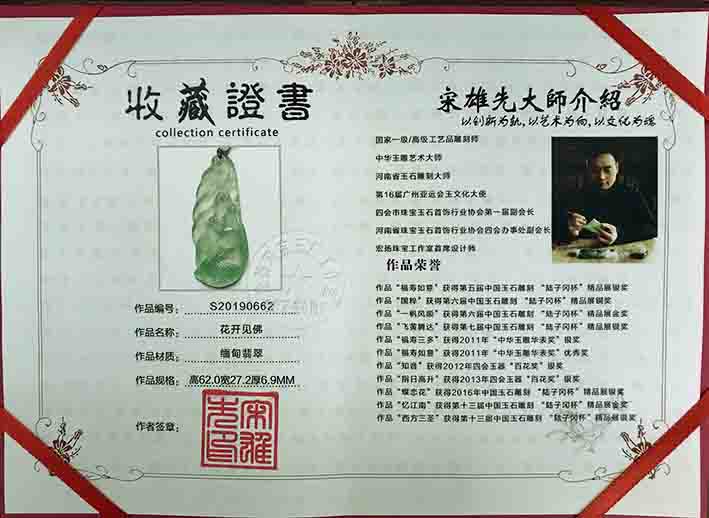 收藏證書
collection certificate
作品编号: S20190662
作品名称: 花开见佛
作品材质: 缅甸翡翠
作品规格: 高62.0宽27.2厚6.9MM
作者签章:
宋雄先大師介紹
以创新为轨,以艺术为向,以文化为魂
国家一级/高级工艺品雕刻师
中华玉雕艺术大师
河南省玉石雕刻大师
第16届广州亚运会玉文化大使
四会市珠宝玉石首饰行业协会第一届副会长
河南省珠宝玉石首饰行业协会四会办事处副会长
宏扬珠宝工作室首席设计师
作品荣誉
作品“福寿如意”获得第五届中国玉石雕刻 “陆子冈杯”精品展银奖
作品“国粹”获得第六届中国玉石雕刻 “陆子冈杯”精品展铜奖
作品“一帆风顺”获得第六届中国玉石雕刻 “陆子冈杯”精品展金奖
作品“飞黄腾达”获得第七届中国玉石雕刻 “陆子冈杯”精品展银奖
作品“福寿三多”获得2011年“中华玉雕华表奖”银奖
作品“福寿如意”获得2011年“中华玉雕华表奖”优秀奖
作品“知音”获得2012年四会玉器 “百花奖”银奖
作品“指日高升”获得2013年四会玉器 “百花奖”银奖
作品“蝶恋花”获得2016年中国玉石雕刻 “陆子冈杯”精品展银奖
作品“忆江南”获得第十三届中国玉石雕刻 “陆子冈杯”精品展金奖
作品“西方三圣”获得第十三届中国玉石雕刻 “陆子冈杯”精品展银奖